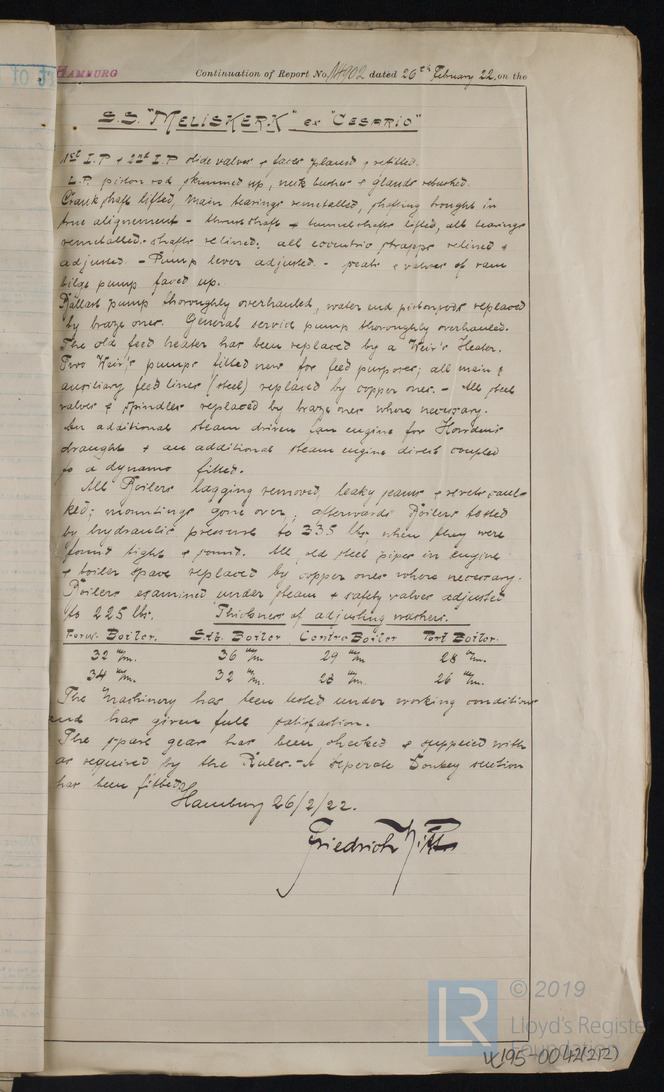 HAMBURG
Continuation of Report No. 14002 dated 26th February 22. on the
S.S. "MELISKERK" ex "CESARIO"
1st I.P. & 2nd I.P. slide valves & faces planed & refitted.
L.P. piston rod skimmed up, neck bushes & glands rebushed.
Crank shaft lifted, main bearings remetalled, shafting brought in
true alignement - thrustshaft & tunnelshafts lifted, all bearings
remetalled. shafts relined; all eccentric strapps relined &
adjusted. - Pump lever adjusted. - seats & valves of ram
bilge pump faced up.
Ballast pump thoroughly overhauled, water end pistonrods replaced
by bronze ones. General service pump thoroughly overhauled.
The old feed heater has been replaced by a Weir's Heater.
Two Weir's pumps fitted new for feed purposes; all main &
auxiliary feed lines (steel) replaced by copper ones. - All steel
valves & spindles replaced by bronze ones where necessary.
An additional steam driven fan engine for Howdens
draught & an additional steam engine direct coupled
to a dynamo fitted.
All Boilers lagging removed, leaky seams & rivets caul-
ked; mountings gone over; afterwards Boilers tested
by hydraulic pressure to 335 lbs. when they were
found tight & sound. All old steel pipes in engine
& boiler space replaced by copper ones where necessary.
Boilers examined under steam & safety valves adjusted
to 225 lbs. Thickness of adjusting washers.
Forw. Boiler. Stb. Boiler Centre Boiler Port Boiler.
32 m/m. 36 m/m 29 m/m 28 m/m.
34 m/m. 32 m/m. 28 m/m. 26 m/m.
The Machinery has been tested under working conditions
and has given full satisfaction.
The spare gear has been checked & supplied with
as required by the Rules. - A seperate Donkey suction
has been fitted.
Hamburg 26/2/22.
Friedrich
© 2019
LR
Lloyd's Register
Foundation
W195-0042(2/2)